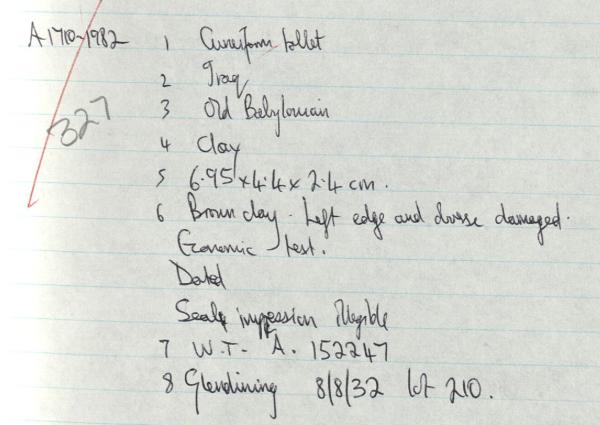 A1710-1982 1 Cuneiform tablet
2 Iraq
327
3 Old Babylonian
4 Clay
5 6.95 x 4.4 x 2.4 cm.
6 Brown clay. Left edge and obverse damaged.
Economic text.
Dated
Seal impression illegible
7 W.T. - A. 152247
8 Glendining 8/8/32 lot 210.